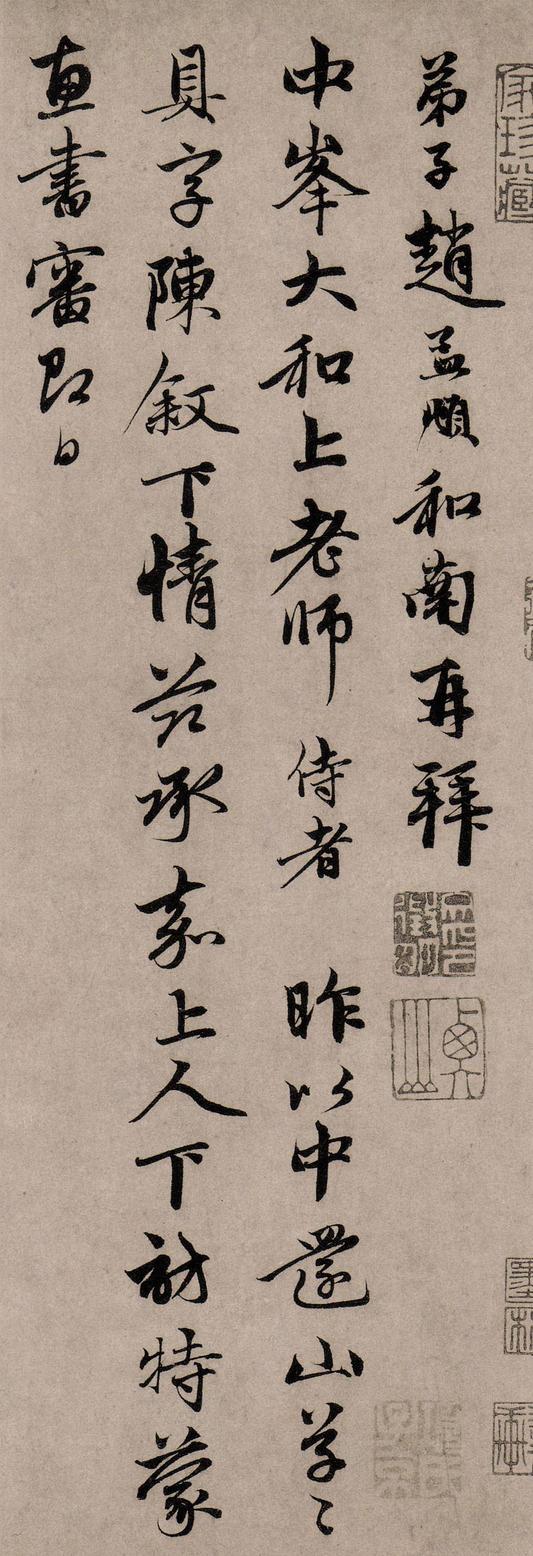 弟子趙孟頫和南再拜
中峯大和上老師侍者 昨以中還山草〻
具字陳敘下情兹承嘉上人下訪特蒙
惠書審即日